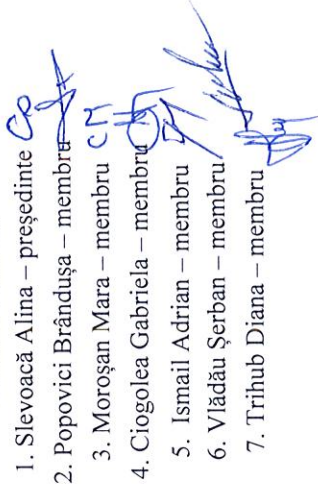 1. Slevoacă Alina – președinte
2. Popovici Brândușa – membru
3. Moroșan Mara – membru
4. Ciogolea Gabriela – membru
5. Ismail Adrian – membru
6. Vlădău Șerban – membru
7. Trihub Diana – membru